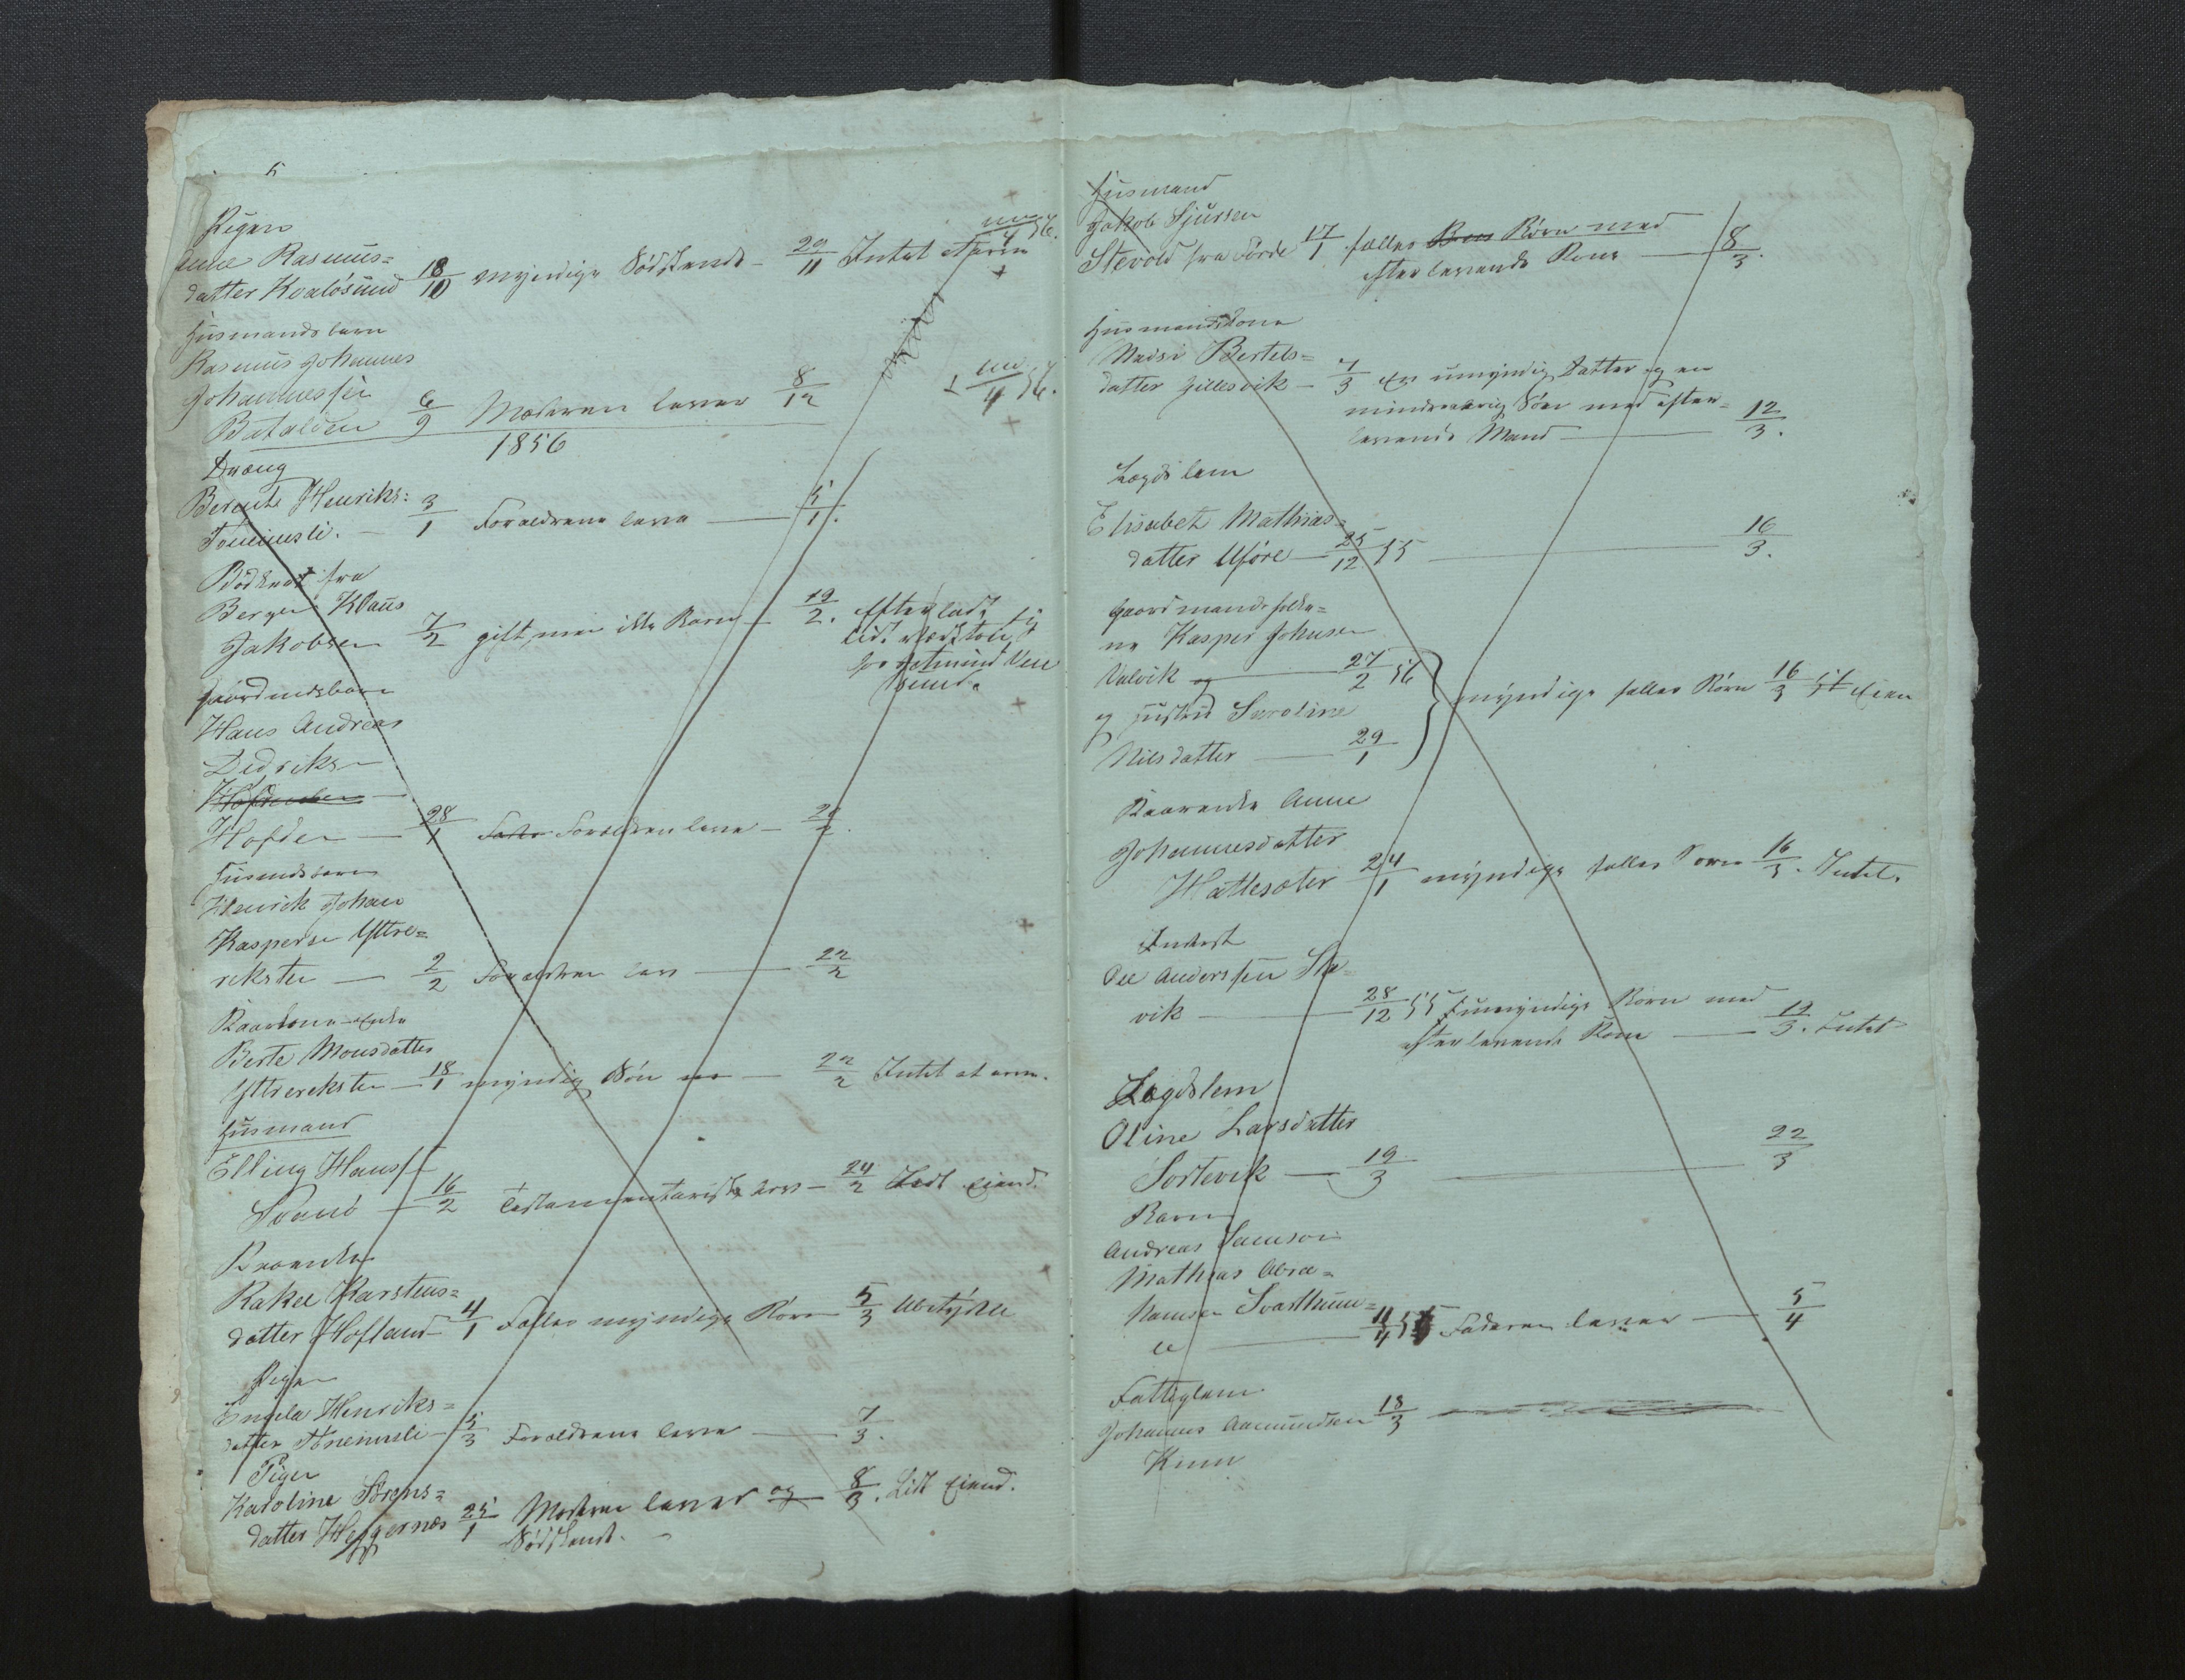 Pigen
Anne Rasmus=
datter Kvalösund 18/10 myndige Södskende - 29/11 Intet at arve
Husmandsbarn
Rasmus Johannes
Johannessen
Batalden 6/9 Moderen lever 8/12
1856
Dreng
Berente Henriks:
3/1 Forældrene leve — 5/1.
Bödker fra
Bergen Klaus
Jakobsen 7/2 gift, men ikke Børn — 19/2. Efterladt
Gaardmdsbarn
Hans Andreas
Dedriks
Hofden — 28/1 Forældrene leve — 22/2.
Husmdsbarn
Henrik Johan
Kaspersen Yttre=
reksten — 2/2 Forældrene leve — 22/2
Kaarkone-Enke
Berte Monsdatter
Yttrereksten — 18/1 myndig Sön — 22/2 Intet at arve.
Husmand
Elling Hans
Svanö — 16/2 Testamentarisk Arv — 24/2 Lidt Eiend.
Kaarenke
Rakel Karstens=
datter Hofland 4/1 Fælles myndige Børn 5/3 Ubetydl
Pigen
Engela Henriks=
datter 5/3 Forældrene leve — 7/3.
Pigen
Karoline Sörens=
datter Heggernæs 25/1 Moderen lever og — 8/3. Lidt Eiend.
Södskende.
Husmand
Jakob Sjursen
Stevold fra Förde 17/1 fælles Børn Børn med
efterlevende Kone — 8/3.
Husmandskone
Madsi Bertels=
datter Gillesvik — 7/3 En umyndig Datter og en
mindreaarig Sön med efter=
levende Mand — 12/3.
Lægdslem
Elisabet Mathias=
datter Uføre — 25/12 55 — 16/3.
Gaardmandsfolke=
ne Kasper Johnsen
Valvik og — 27/2 56
og Hustru Seroline
Nilsdatter — 29/1
myndige fælles Börn 16/3
Kaarenke Anne
Johannesdatter
Hattesæter 24/1 myndige fælles Børn 16/3. Intet.
Inderst
Ole Anderssen Sta=
vik — 28/12 55 umyndige Børn med
efterlevende Kone — 19/3. Intet
Lægdslem
Oline Larsdatter
Sortevik — 19/3 — 22/3
Barn
Andreas Samson
Mathias Abra=
hamsen Svarthum=
le — 11/4 55 Faderen lever — 5/4
Fattiglem
Johannes Aamundsen 18/3
Kinn